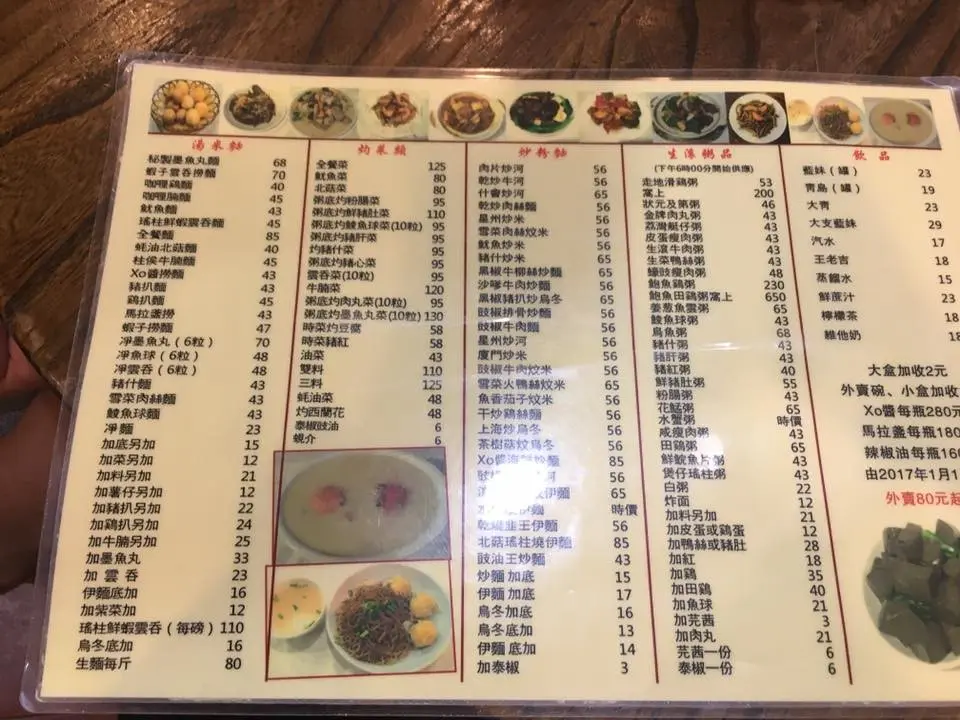 湯米麵
秘製墨魚丸麵 68
蝦子雲吞撈麵 70
咖哩鷄麵 40
咖哩腩麵 45
魷魚麵 43
瑤柱鮮蝦雲吞麵 45
全餐麵 85
蚝油北菇麵 40
柱侯牛腩麵 45
Xo醬撈麵 43
豬扒麵 43
鷄扒麵 45
馬拉盞撈 43
蝦子撈麵 47
凈墨魚丸(6粒) 70
凈魚球(6粒) 48
凈雲吞(6粒) 48
豬什麵 43
雪菜肉絲麵 43
鯪魚球麵 43
凈麵 23
加底另加 15
加菜另加 12
加料另加 21
加薯仔另加 12
加豬扒另加 22
加鷄扒另加 24
加牛腩另加 25
加墨魚丸 33
加雲吞 23
伊麵底加 16
加紫菜加 12
瑤柱鮮蝦雲吞(每磅) 110
烏冬底加 16
生麵每斤 80
灼菜類
全餐菜 125
魷魚菜 80
北菇菜 80
粥底灼粉腸菜 95
粥底灼鮮豬肚菜 110
粥底灼鯪魚球菜(10粒) 95
粥底灼豬肝菜 95
灼豬什菜 95
粥底灼豬心菜 95
雲吞菜(10粒) 95
牛腩菜 120
粥底灼肉丸菜(10粒) 95
粥底灼墨魚丸菜(10粒) 130
時菜灼豆腐 58
時菜豬紅 58
油菜 43
雙料 110
三料 125
蚝油菜 48
灼西蘭花 48
泰椒豉油 6
蜆介 6
炒粉麵
肉片炒河 56
乾炒牛河 56
什會炒河 65
乾炒肉絲麵 56
星州炒米 56
雪菜肉絲炆米 56
魷魚炒米 56
豬什炒米 65
黑椒牛柳絲炒麵 65
沙嗲牛肉炒麵 56
黑椒豬扒炒烏冬 65
豉椒排骨炒麵 56
豉椒牛肉麵 56
星州炒河 56
廈門炒米 56
豉椒牛肉炆米 56
雪菜火鴨絲炆米 65
魚香茄子炆米 56
干炒鷄絲麵 56
上海炒烏冬 56
茶樹菇炆烏冬 56
Xo醬海鮮炒麵 85
豉椒 河 56
伊麵 65
伊麵 時價
乾燒韭王伊麵 56
北菇瑤柱燒伊麵 85
豉油王炒麵 43
炒麵 加底 15
伊麵 加底 17
烏冬加底 16
烏冬底加 13
伊麵 底加 14
加泰椒 3
生滾粥品
(下午6時00分開始供應)
走地滑鷄粥 53
窩上 200
狀元及第粥 46
金牌肉丸粥 43
荔灣艇仔粥 43
皮蛋瘦肉粥 43
生滾牛肉粥 43
生菜鴨絲粥 43
蠔豉瘦肉粥 48
鮑魚鷄粥 230
鮑魚田鷄粥窩上 650
姜葱魚雲粥 65
鯪魚球粥 43
烏魚粥 68
豬什粥 43
豬肝粥 43
豬紅粥 40
鮮豬肚粥 55
粉腸粥 43
花鯭粥 65
水蟹粥 時價
咸瘦肉粥 43
田鷄粥 65
鮮鯇魚片粥 43
煲仔瑤柱粥 43
白粥 22
炸面 12
加料另加 21
加皮蛋或鷄蛋 12
加鴨絲或豬肚 28
加紅 18
加鷄 35
加田鷄 40
加魚球 21
加芫茜 3
加肉丸 21
芫茜一份 6
泰椒一份 6
飲品
藍妹(罐) 23
青島(罐) 19
大青 23
大支藍妹 29
汽水 17
王老吉 18
蒸餾水 15
鮮蔗汁 23
檸檬茶 18
維他奶 18
大盒加收2元
外賣碗、小盒加收
Xo醬每瓶280元
馬拉盞每瓶180
辣椒油每瓶160
由2017年1月1
外賣80元起